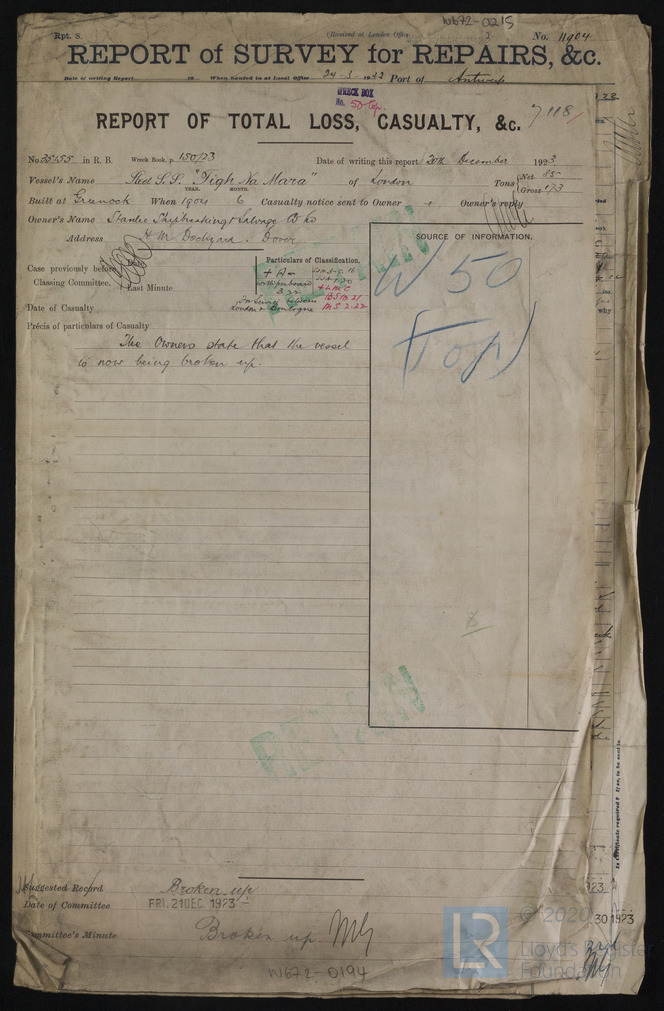 W672-0215
Rpt. 8. (Received at London Office No. 11904
REPORT of SURVEY for REPAIRS, &c.
Date of writing Report 19 When handed in at Local Office 24-3-1922 Port of Antwerp
WRECK BOX
No. 50 top
REPORT OF TOTAL LOSS, CASUALTY, &c. 7118
No. 25455 in R. B. Wreck Book, p. 150/23 Date of writing this report 20th December 1923
Vessel's Name Steel S.S. "Tigh Na Mara" of London Tons Net 85
Gross 173
YEAR. MONTH.
Built at Greenock When 1904 6 Casualty notice sent to Owner Owner's reply
Owner's Name Stanlee Shipbreaking & Salvage Co Ld
Address H M Dockyard, Dover
SOURCE OF INFORMATION.
W 50
(Top)
Case previously before
Classing Committee,
Date
Last Minute
Particulars of Classification.
+ A-
with freeboard
3.22
+ LMC
BS 10.21
MS 2.22
for Service between
London & Boulogne
Date of Casualty
Précis of particulars of Casualty
The Owners state that the vessel
is now being broken up.
RETURN
RETURN
Suggested Record Broken up
Date of Committee FRI. 21 DEC. 1923
Committee's Minute Broken up
W672-0194
30 1923
LR © 2020
Lloyd's Register
Foundation